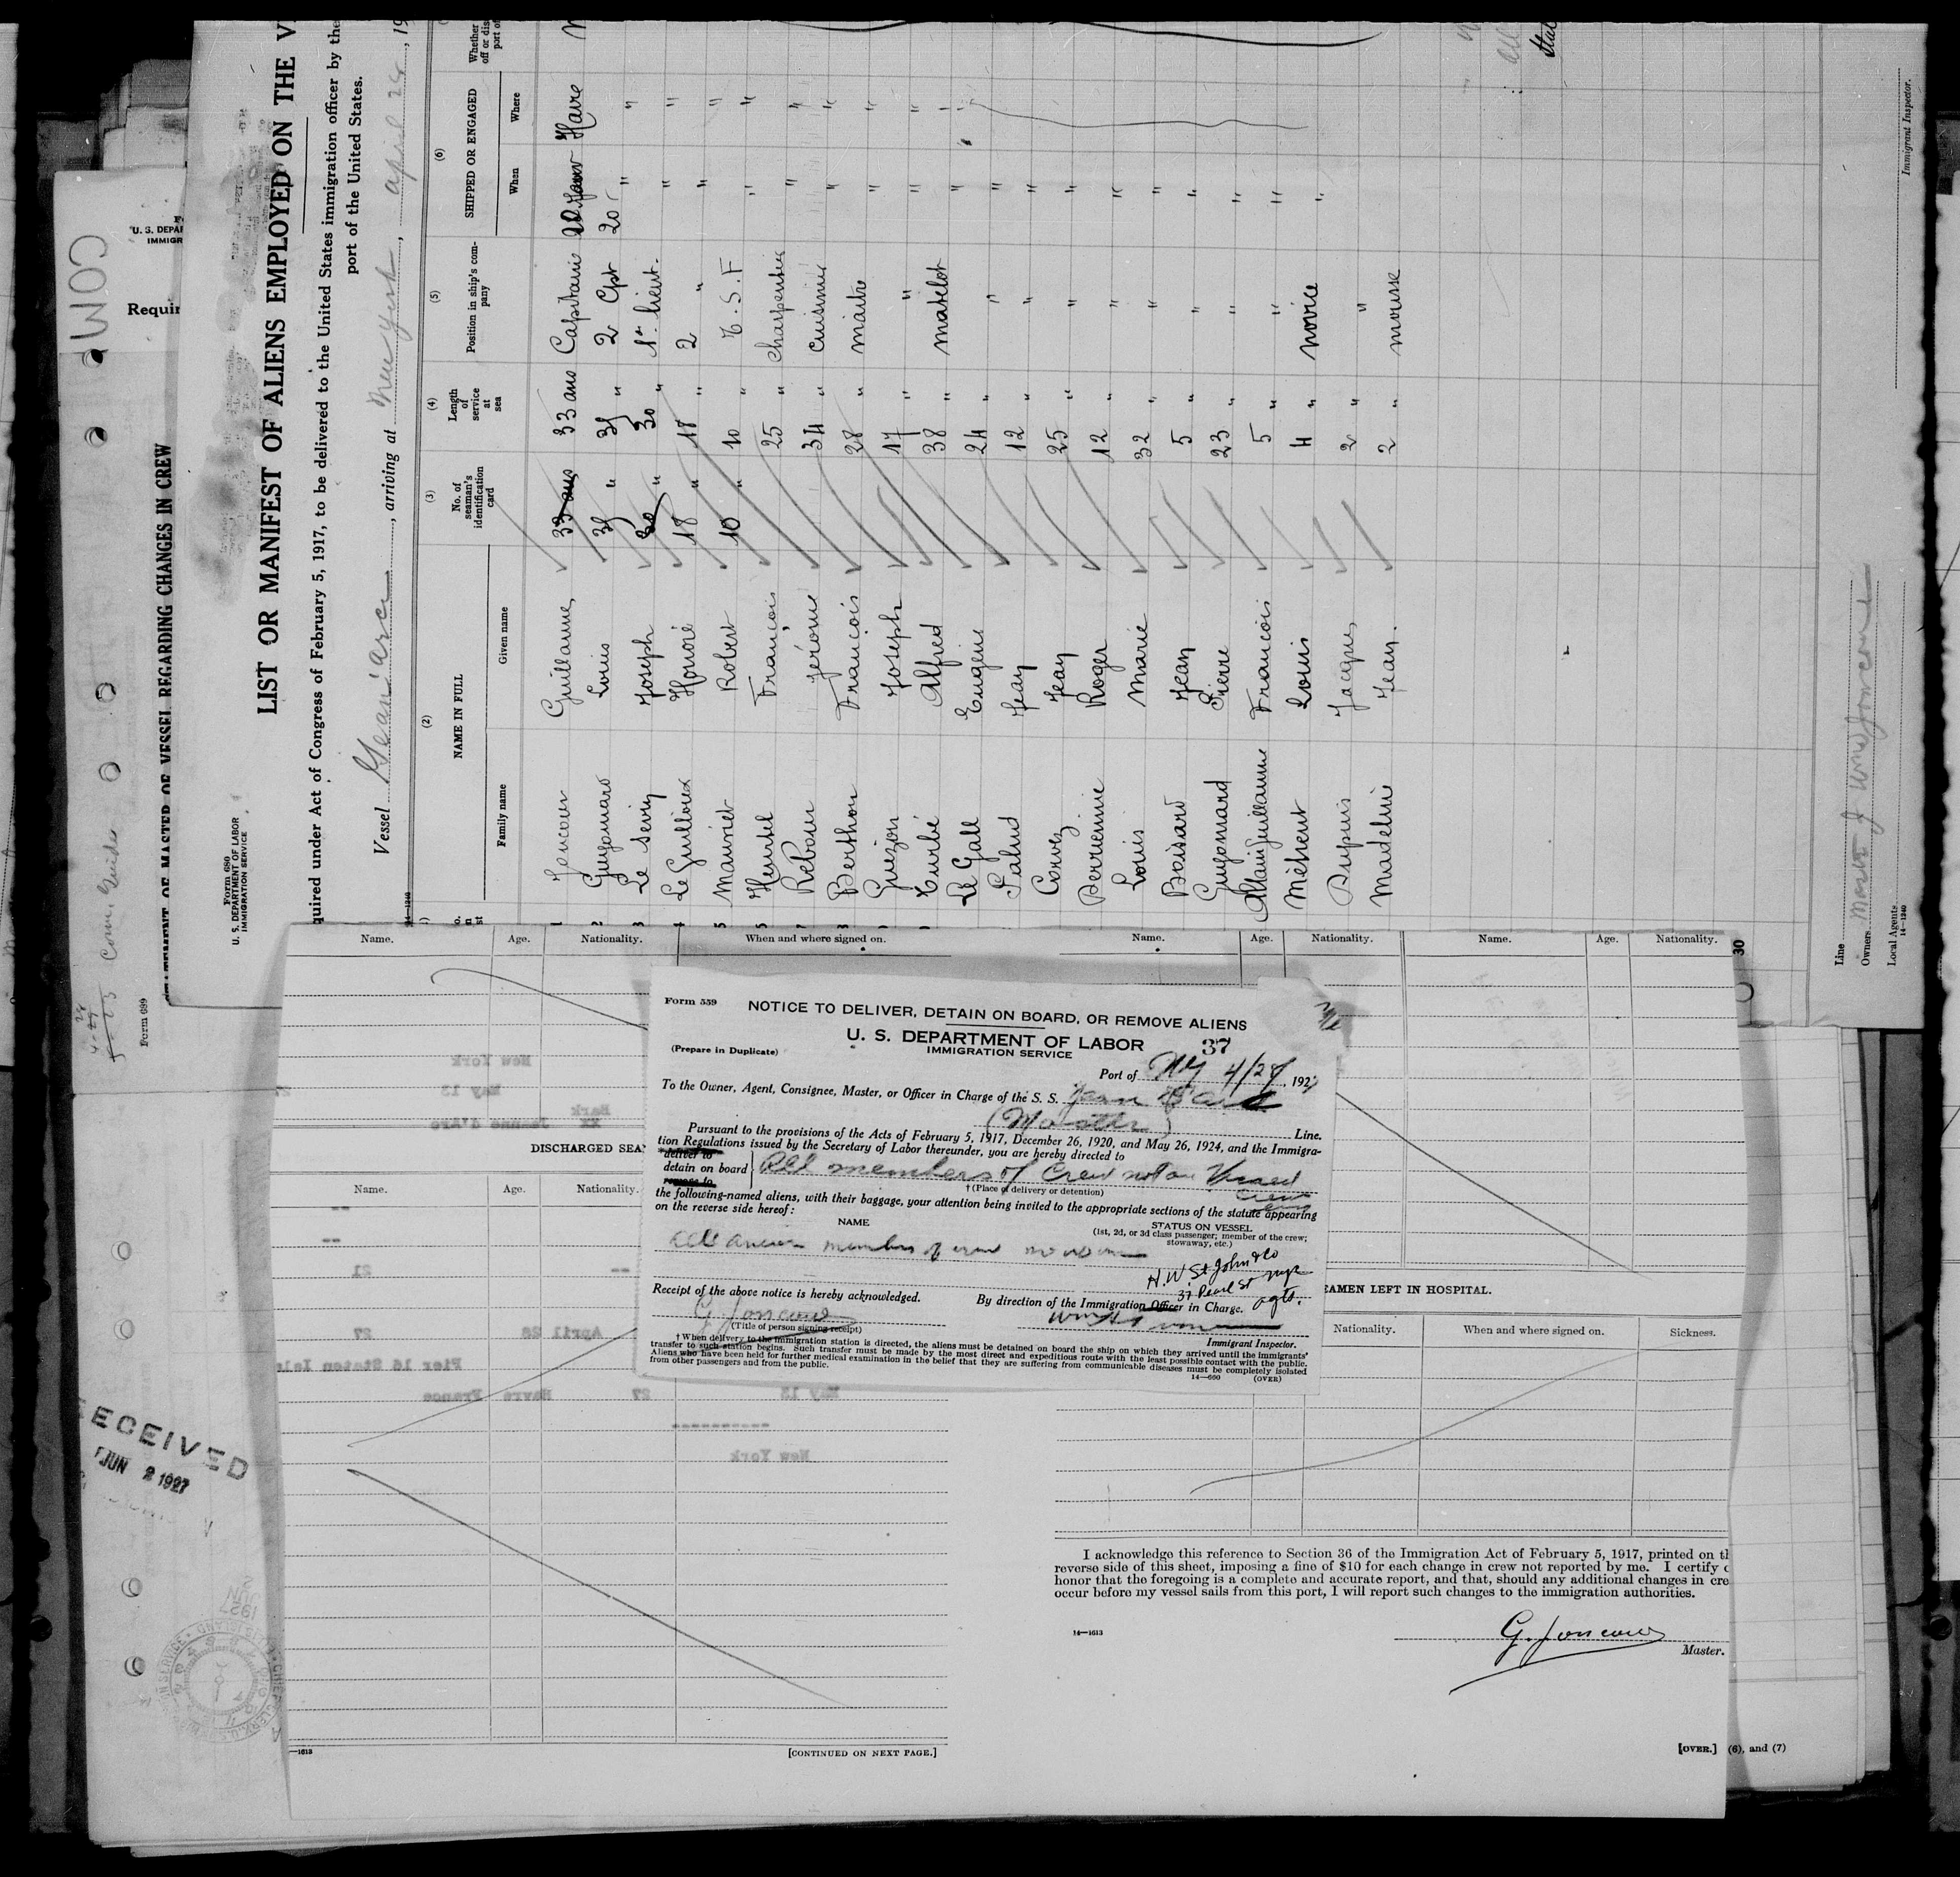 COM
U. S. DEPA
IMMIGR
Requir
STATEMENT OF MASTER OF VESSEL REGARDING CHANGES IN CREW
Form 689
Form 680
U. S. DEPARTMENT OF LABOR
IMMIGRATION SERVICE
LIST OR MANIFEST OF ALIENS EMPLOYED ON THE V
quired under Act of Congress of February 5, 1917, to be delivered to the United States immigration officer by the
port of the United States.
Vessel Jean d'arc, arriving at New York, april 28, 19
14—1240
(2) (3) (4) (5) (6)
NAME IN FULL
No. of seaman's identification card
Length of service at sea
Position in ship's company
SHIPPED OR ENGAGED
Whether
Family name Given name When Where
1 Joncour Guillaume 33 ans 33 ans Capitaine Havre
2 Guyomard Louis 35 " 35 " 2 Cpt 20 " "
3 Le Sevin Joseph 30 " 30 " 1er lieut. " "
4 Le Guilloux Honoré 18 " 18 " 2 " " "
5 Maunier Robert 10 " 10 " T.S.F " "
Heurtel François 25 " charpentier " "
Rebour Jérome 34 " cuisinier " "
Berthon François 28 " maitre " "
Guezou Joseph 17 " " " "
Turbé Alfred 38 " matelot " "
Le Gall Eugene 24 " " "
Salud Jean 12 " " "
Corvez Jean 25 " " "
Perrienne Roger 12 " " "
Louis Marie 32 " " "
Boissard Jean 5 " " "
Guyomard Pierre 23 " " "
Allainguillaume François 5 " " "
Méheut Louis 4 " novice "
Dupuis Jacques 2 " "
Madeline Jean. 2 " mousse
30
Line
Owners
Local Agents
14—1240
Immigrant Inspector.
Name. Age. Nationality. When and where signed on. Name. Age. Nationality. Name. Age. Nationality.
New York
May 13
Bark
Jeanne d'Arc
DISCHARGED SEA
Name. Age. Nationality.
21
April 28 27
Pier 16 Staten Isl
May 13 27 Havre France
New York
Form 559
NOTICE TO DELIVER, DETAIN ON BOARD, OR REMOVE ALIENS
U. S. DEPARTMENT OF LABOR 37
(Prepare in Duplicate) IMMIGRATION SERVICE
Port of NY 4/28, 1927
To the Owner, Agent, Consignee, Master, or Officer in Charge of the S. S. Jean d'arc
Line.
Pursuant to the provisions of the Acts of February 5, 1917, December 26, 1920, and May 26, 1924, and the Immigra-
tion Regulations issued by the Secretary of Labor thereunder, you are hereby directed to
deliver to
detain on board All members of Crew not on Visaed
remove to crew
† (Place of delivery or detention)
the following-named aliens, with their baggage, your attention being invited to the appropriate sections of the statute appearing
on the reverse side hereof:
NAME STATUS ON VESSEL
(1st, 2d, or 3d class passenger; member of the crew; stowaway, etc.)
members of crew
H. W. St John & Co
37 Pearl St
agts.
Receipt of the above notice is hereby acknowledged.
By direction of the Immigration Officer in Charge.
G. Joncour
(Title of person signing receipt)
Immigrant Inspector.
† When delivery to the immigration station is directed, the aliens must be detained on board the ship on which they arrived until the immigrants'
transfer to such station begins. Such transfer must be made by the most direct and expeditious route with the least possible contact with the public.
Aliens who have been held for further medical examination in the belief that they are suffering from communicable diseases must be completely isolated
from other passengers and from the public.
14—660 (OVER)
EAMEN LEFT IN HOSPITAL.
Nationality. When and where signed on. Sickness.
ECEIVED
JUN 2 1927
I acknowledge this reference to Section 36 of the Immigration Act of February 5, 1917, printed on t
reverse side of this sheet, imposing a fine of $10 for each change in crew not reported by me. I certify
honor that the foregoing is a complete and accurate report, and that, should any additional changes in cre
occur before my vessel sails from this port, I will report such changes to the immigration authorities.
14—1613
G. Joncour
Master.
—1613
[CONTINUED ON NEXT PAGE.]
[OVER.] (6), and (7)